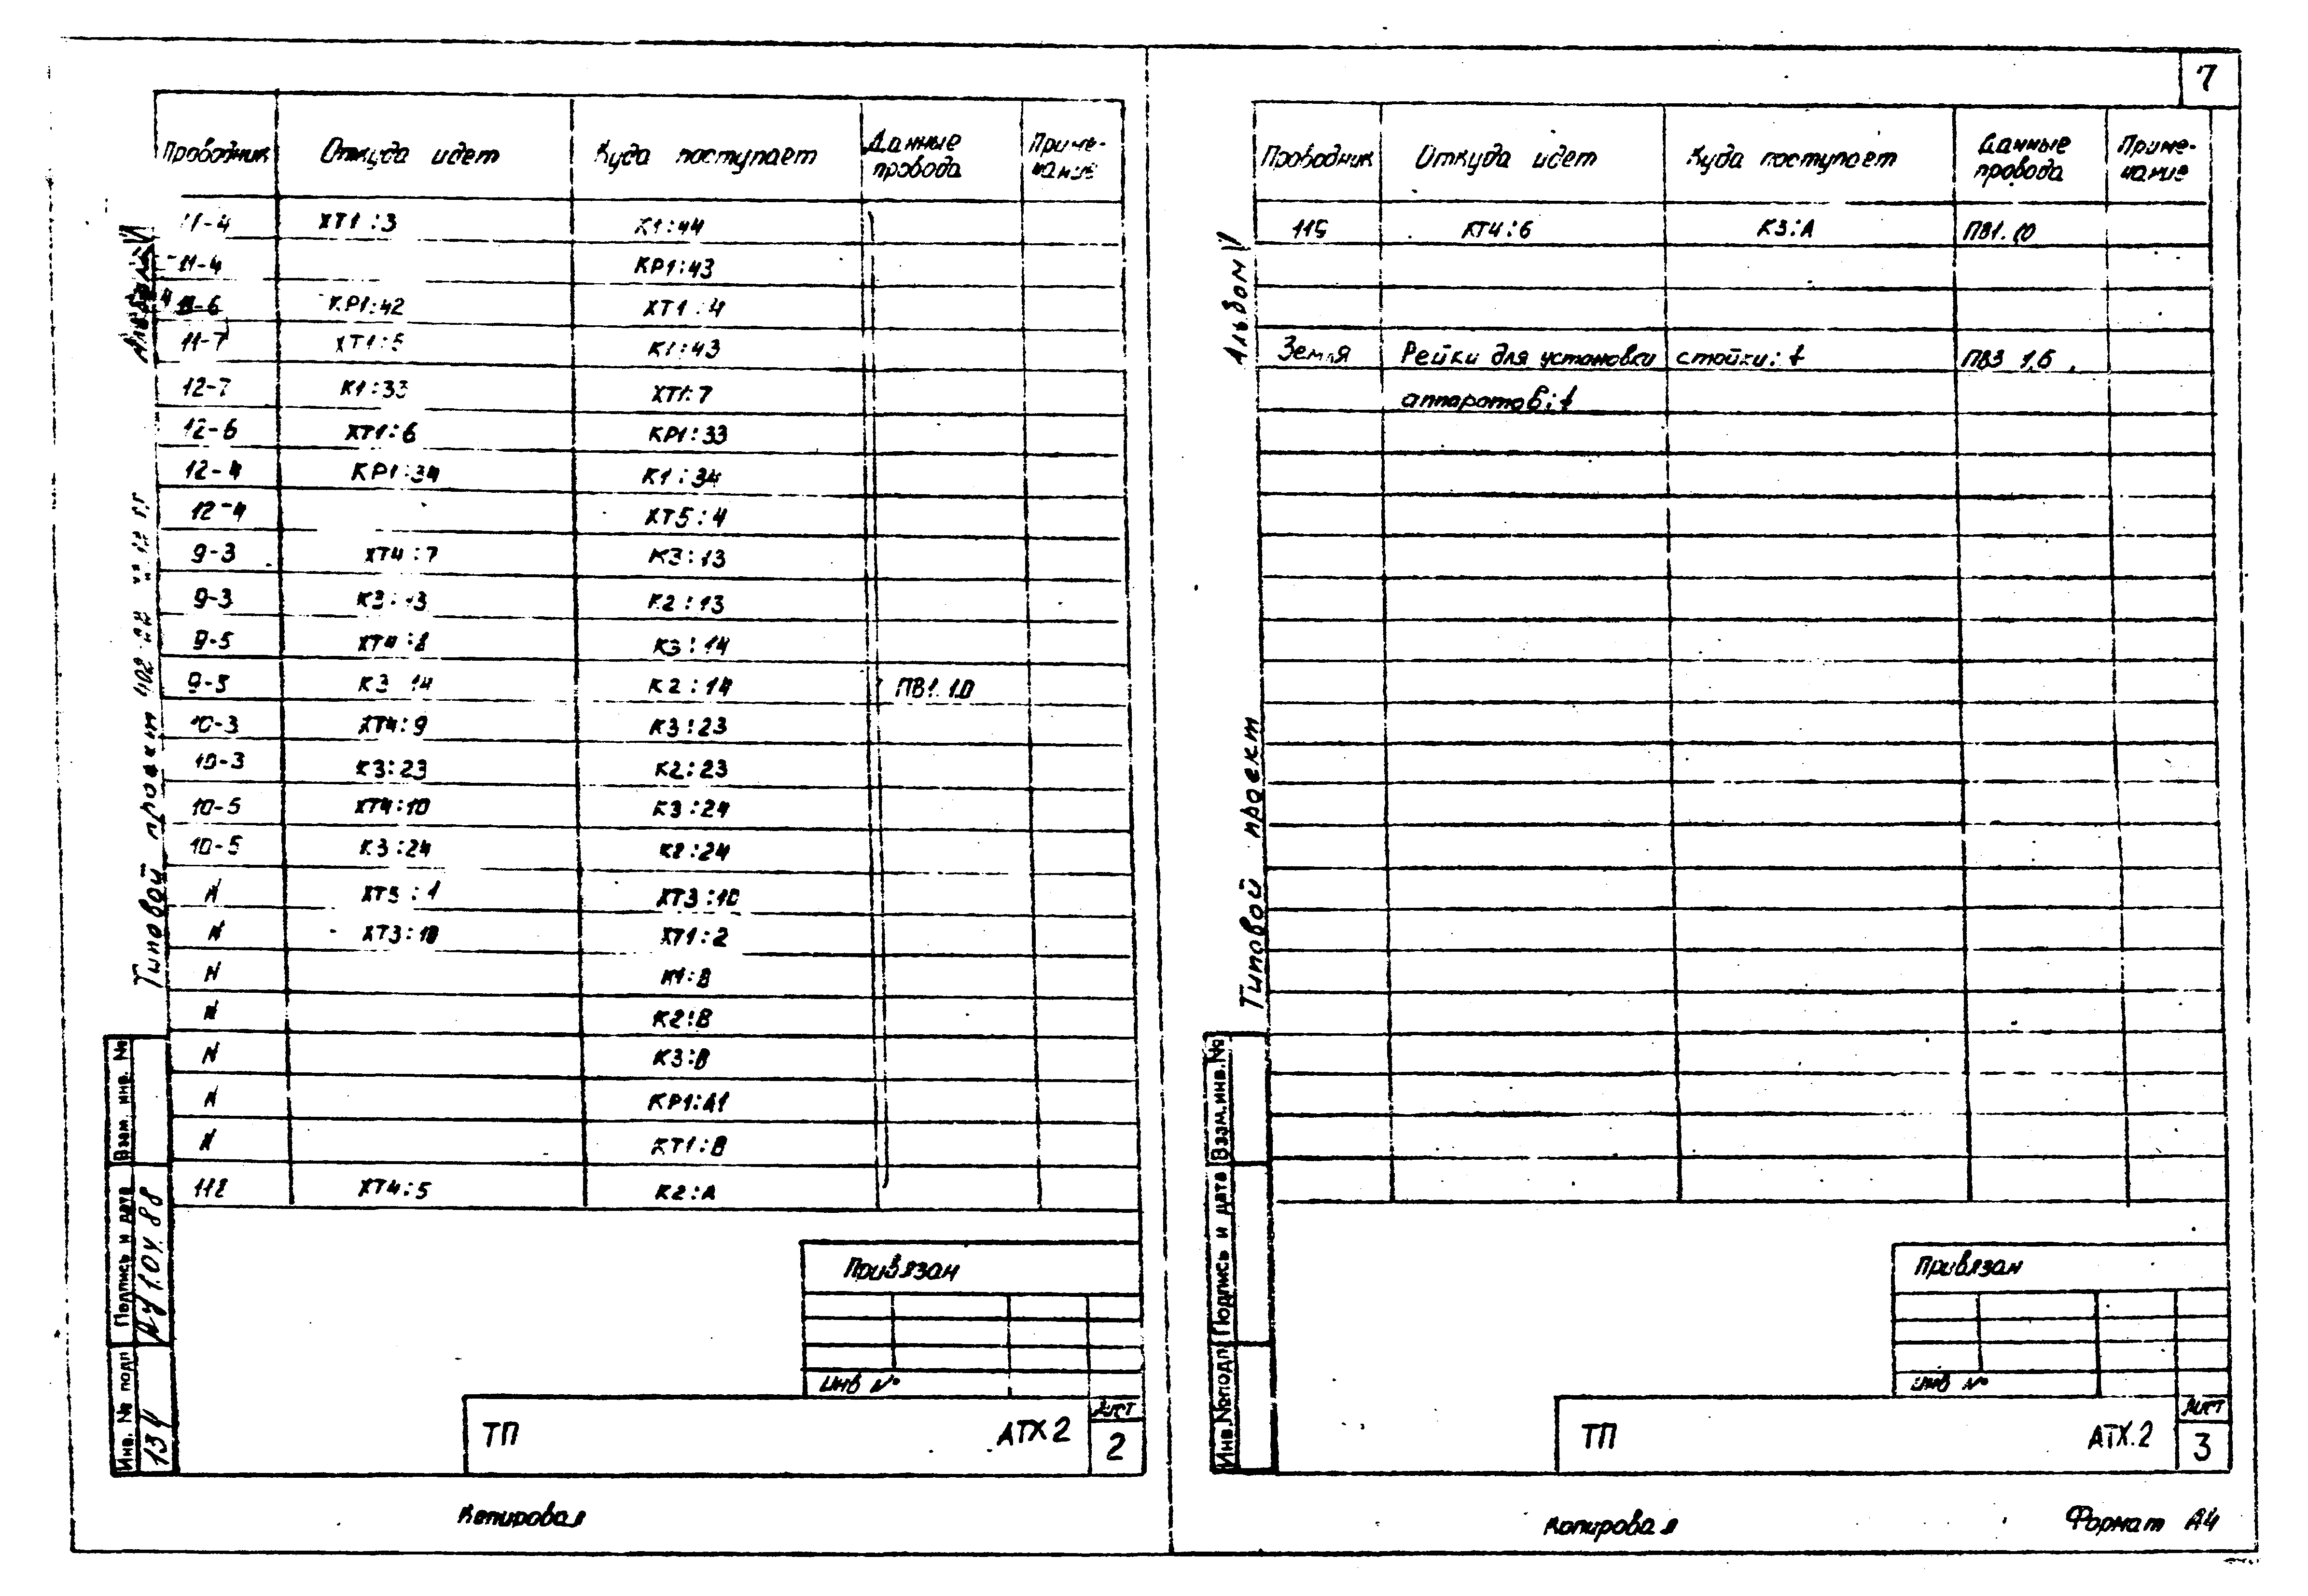 7
Проводник Откуда идет Куда поступает Данные провода Приме-чание
11-4 XT1:3 K1:44
11-4 КР1:43
11-6 КР1:42 XT1:4
11-7 XT1:5 K1:43
12-7 K1:33 XT1:7
12-6 XT1:6 КР1:33
12-4 КР1:34 K1:34
12-4 XT5:4
9-3 XT4:7 K3:13
9-3 K3:13 K2:13
9-5 XT4:8 K3:14
9-5 K3 14 K2:14 ПВ1. 1.0
10-3 XT4:9 K3:23
10-3 K3:23 K2:23
10-5 XT4:10 K3:24
10-5 K3:24 K2:24
N XT5:1 XT3:10
N XT3:10 XT1:2
N K1:B
N K2:B
N K3:B
N КР1:A1
N КТ1:B
112 XT4:5 K2:A
Альбом V
Типовой проект
Взам. инв. №
Подпись и дата
1.04.88
Инв. № подл
134
Привязан
Инв №
ТП АТХ 2
Лист
2
Копировал
Проводник Откуда идет Куда поступает Данные провода Приме-чание
115 XT4:6 K3:A ПВ1. 1.0
Земля Рейки для установки стойки: ПВ3 1,5
аппаратов:
Альбом V
Типовой проект
Взам.инв.№
Подпись и дата
Инв.№ подл
Привязан
Инв №
ТП АТХ.2
Лист
3
Копировал
Формат А4